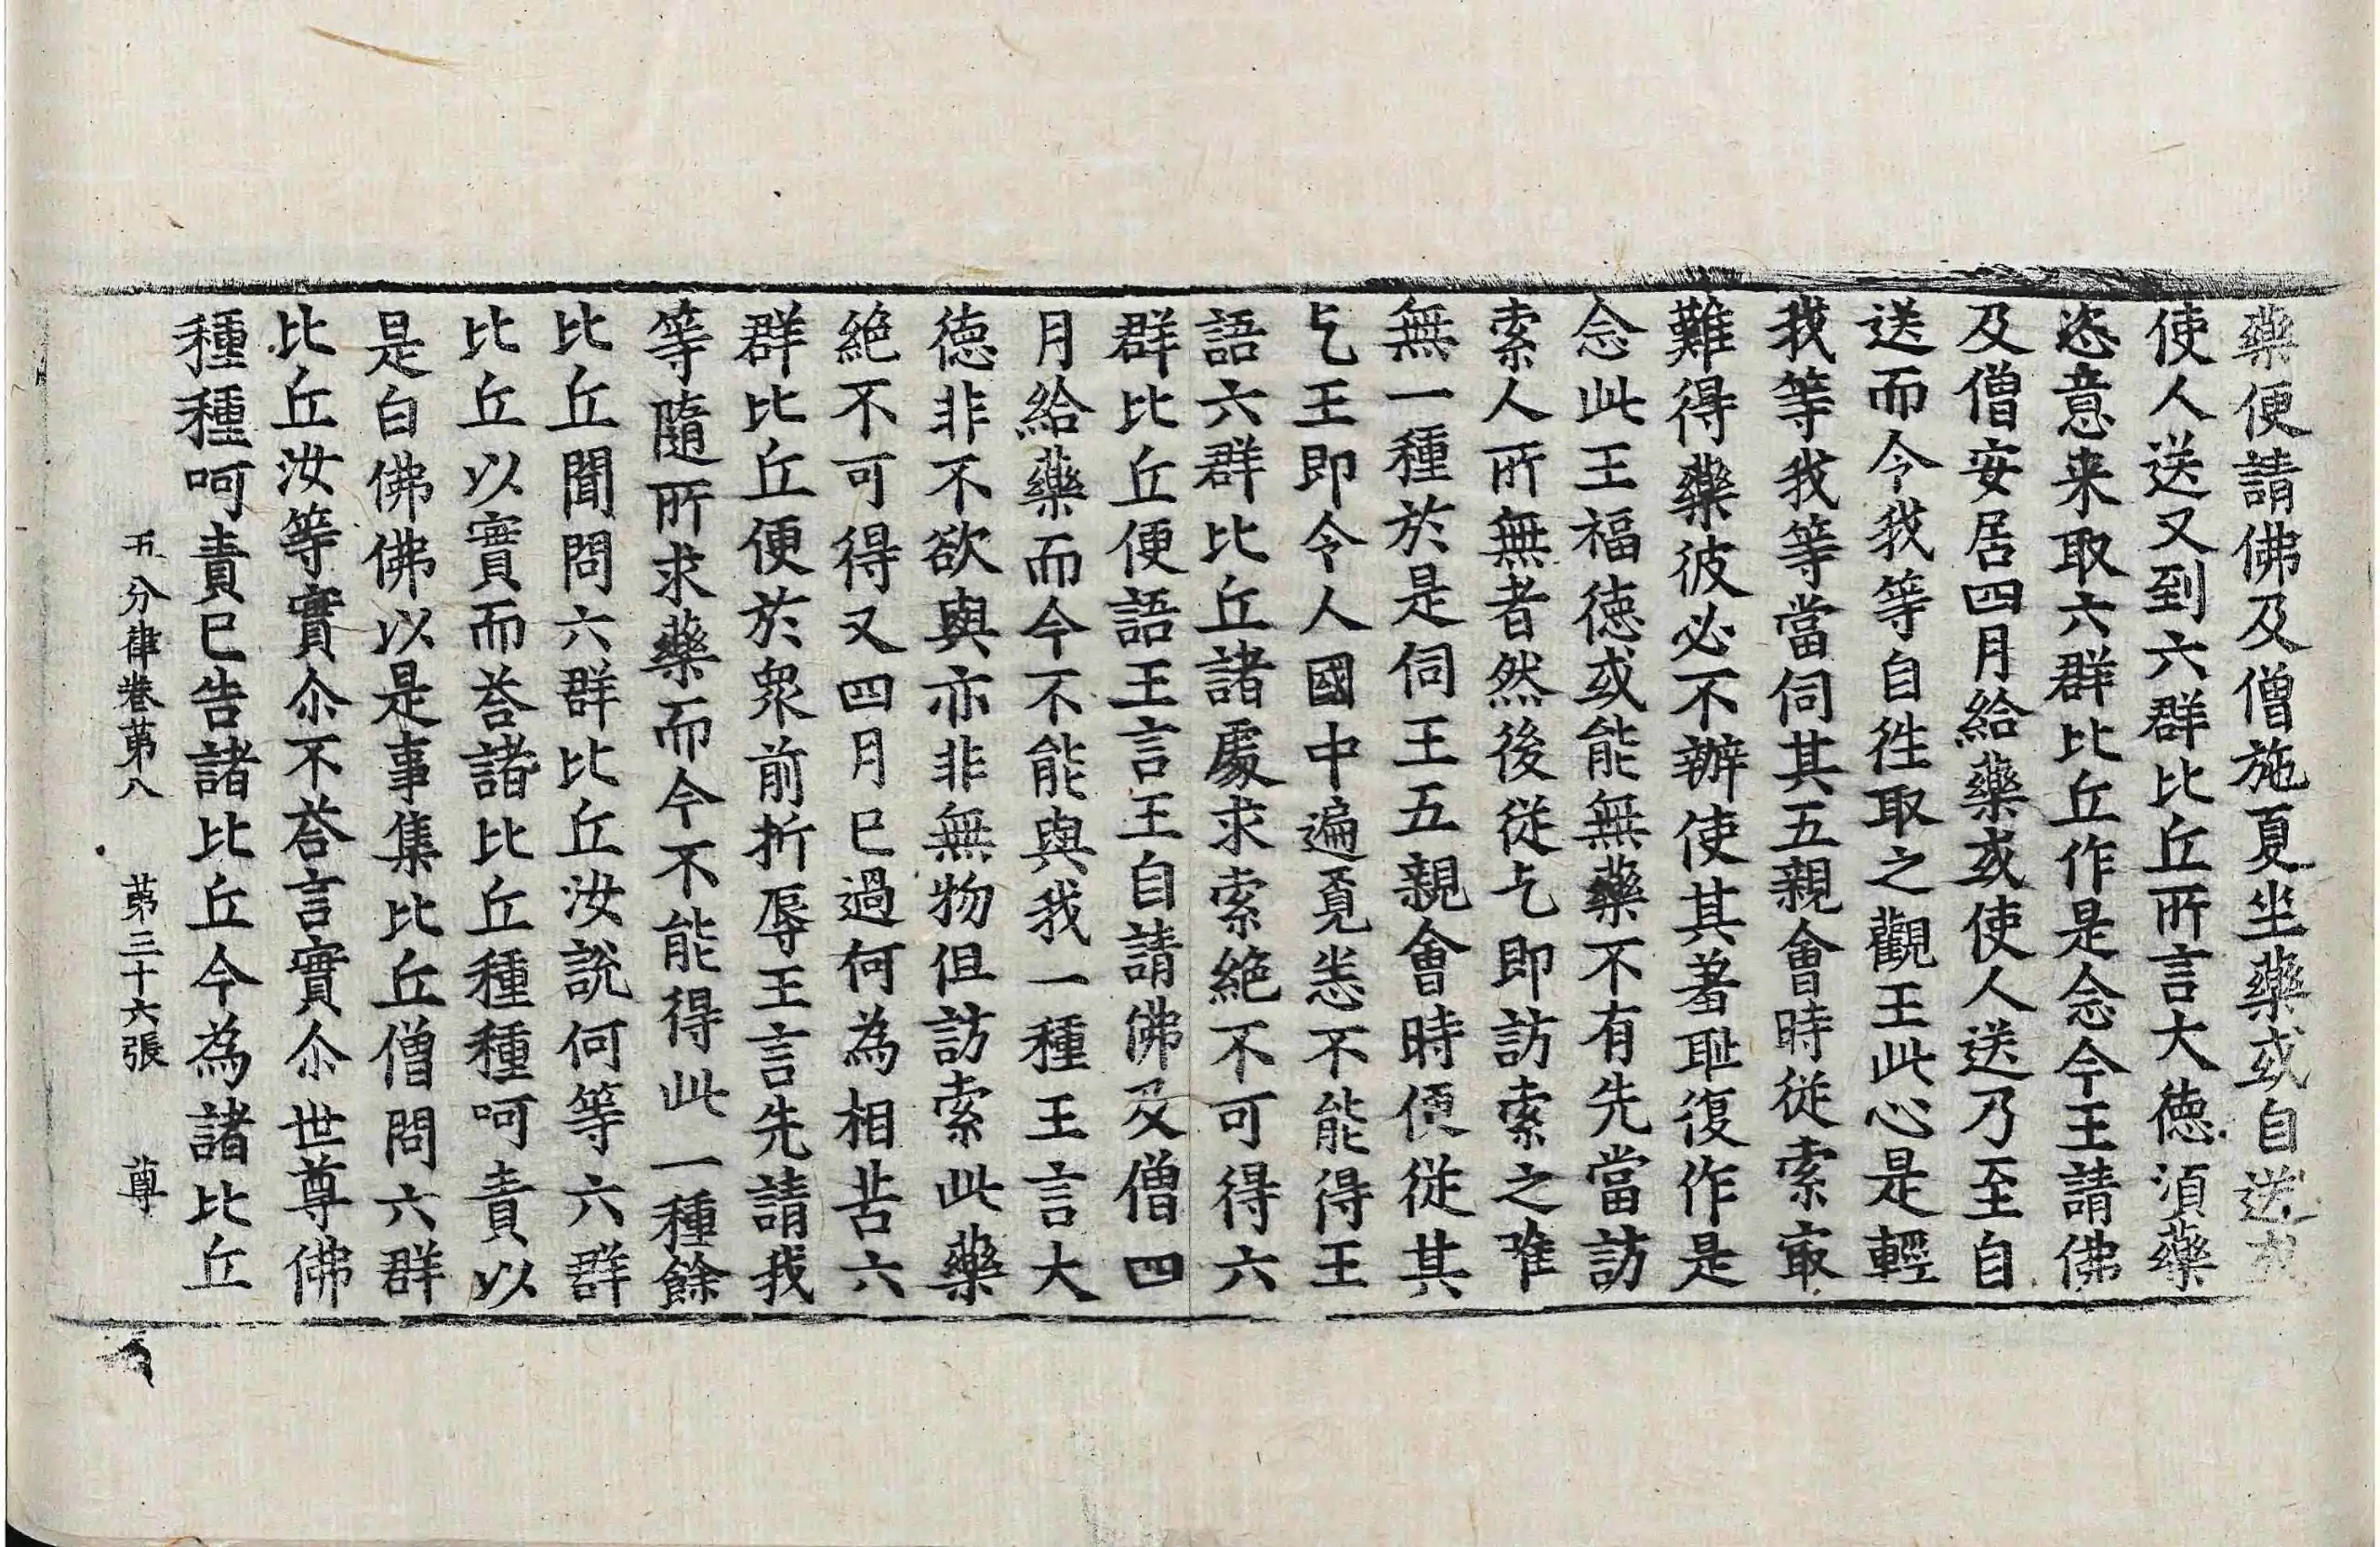 藥便請佛及僧施夏坐藥或自送或
使人送又到六群比丘所言大徳湏藥
恣意来取六群比丘作是念今王請佛
及僧安居四月給藥或使人送乃至自
送而今我等自徃取之觀王此心是輕
我等我等當伺其五親會時從索㝡
難得藥彼必不辦使其羞耻復作是
念此王福徳或能無藥不有先當訪
索人所無者然後從乞即訪索之唯
無一種於是伺王五親會時便從其
乞王即令人國中遍覓悉不能得王
語六群比丘諸處求索絶不可得六
群比丘便語王言王自請佛及僧四
月給藥而今不能與我一種王言大
徳非不欲與亦非無物但訪索此藥
絶不可得又四月已過何為相苦六
群比丘便於衆前折辱王言先請我
等隨所求藥而今不能得此一種餘
比丘聞問六群比丘汝說何等六群
比丘以實而荅諸比丘種種呵責以
是白佛佛以是事集比丘僧問六群
比丘汝等實尒不荅言實尒世尊佛
種種呵責已告諸比丘今為諸比丘
五分律卷苐八 苐三十六張 尊